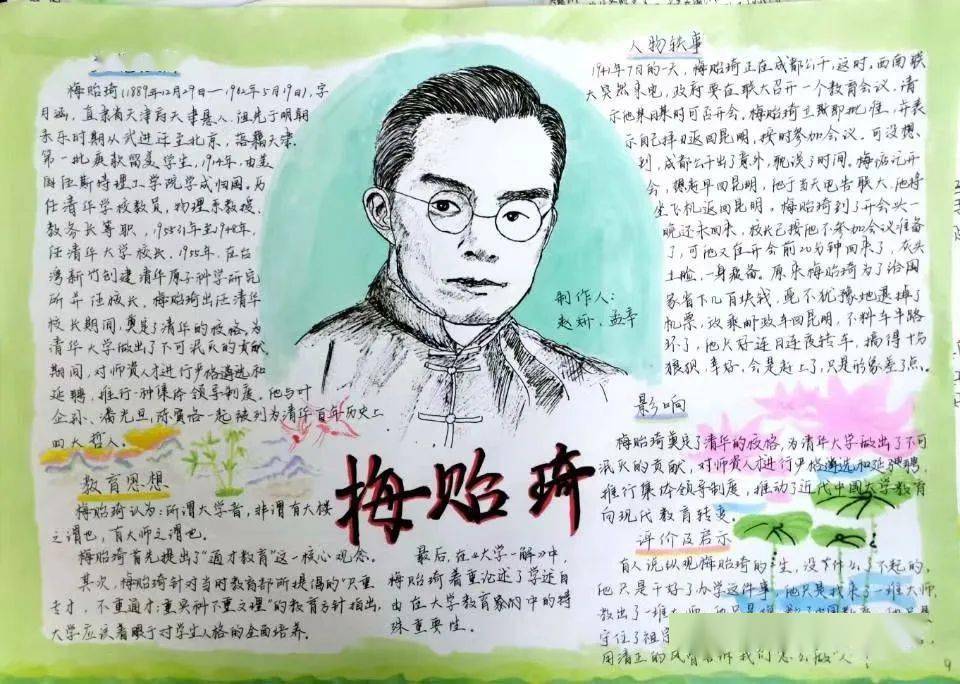 梅贻琦(1889年12月29日—1962年5月19日),字
月涵,直隶省天津府天津县人,祖先于明朝
永乐时期从武进迁至北京,落籍天津.
第一批庚款留美学生,1914年,由美
国伍斯特理工学院学成归国。历
任清华学校教员,物理系教授,
教务长等职,
任清华大学校长,1955年,在台
湾新竹创建清华原子科学研究
所并任校长,梅贻琦出任清华
校长期间,奠定了清华的校格,为
清华大学做出了不可泯灭的贡献.
期间,对师资人才进行严格遴选和
延聘,推行一种集体领导制度。他与叶
企孙、潘光旦、陈寅恪一起被列为清华百年历史上
四大哲人。
教育思想
梅贻琦认为:所谓大学者,非谓有大楼
之谓也,有大师之谓也.
梅贻琦首先提出了"通才教育"这一核心观念.
其次,梅贻琦针对当时教育部所提倡的"只重
专才,不重通才;重实科不重文理"的教育方针指出,
大学应该着眼于对学生人格的全面培养.
最后,在《大学一解》中,
梅贻琦着重论述了学术自
由在大学教育家的中的特
殊重要性.
梅贻琦
制作人:
赵妍、孟平
人物轶事
1941年7月的一天,梅贻琦正在成都公干,这时,西南联
大突然来电,政府要在联大召开一个教育会议,请
示他集回时可否开会,梅贻琦立既即批准,并表
示自己择日返回昆明,按时参加会议.可没想
到,成都公干出了意外,耽误了时间。梅贻记开
会,想着早回昆明,他于当天电告联大,他将
坐飞机返回昆明。梅贻琦到了开会头一
晚还未回来,校长已按他不参加会议准备
了,可他又在开会前20分钟回来了,灰头
土脸,一身疲备。原来梅贻琦为了给国
家省下几百块钱,毫不犹豫地退掉了
机票,改乘邮政车回昆明,不料车半路
坏了,他只好连日连夜转车,搞得十分
狼狈,幸好,会是赶上了,只是形象差了点。
影响
梅贻琦奠定了清华的校格,为清华大学做出了不可
泯灭的贡献,对师资人才进行严格遴选和延骋聘,
推行集体领导制度,推动了近代中国大学教育
向现代教育转变。
评价及启示
有人说纵观梅贻琦的一生,没什么了不起的.
他只是干好了办学这件事,他只是找来了一堆大师,
教出了一堆大师,
守住了祖宗
用清正的风
9